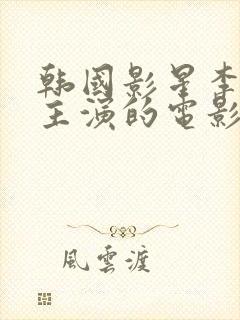 韩國影星李
主演的電影
風雲渡